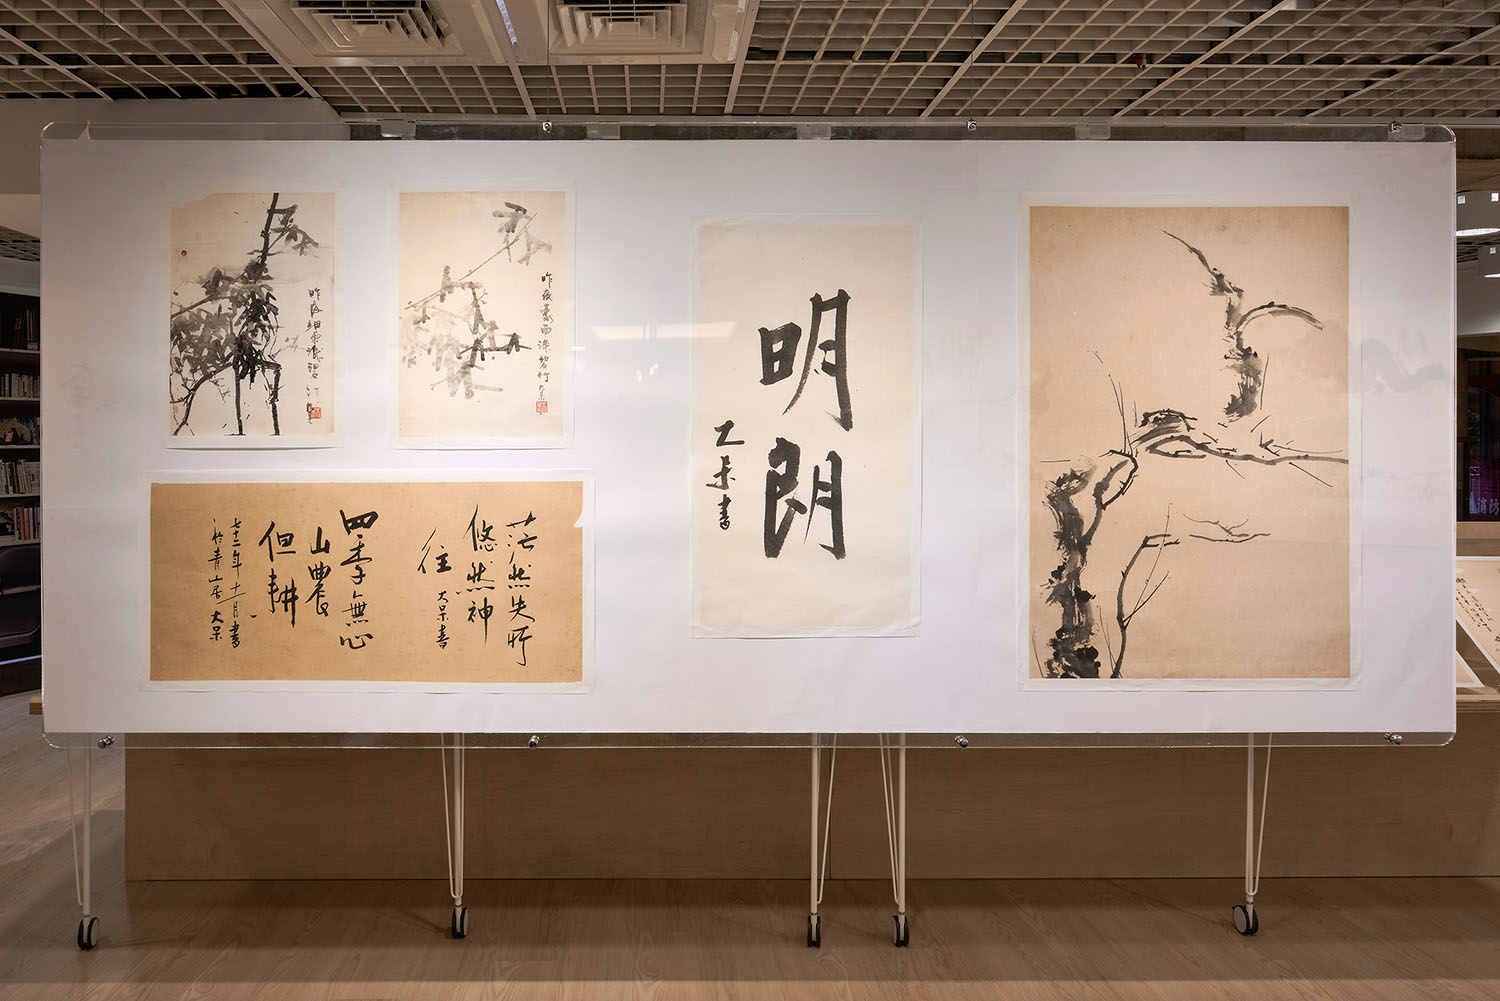 昨夜細雨
昨夜暴雨
碧竹
大呆
茫然失所
悠然神
往
大呆書
四季無心
山農
但耕
七十二年十一月書
於青山居大呆
明朗
呆書
消防